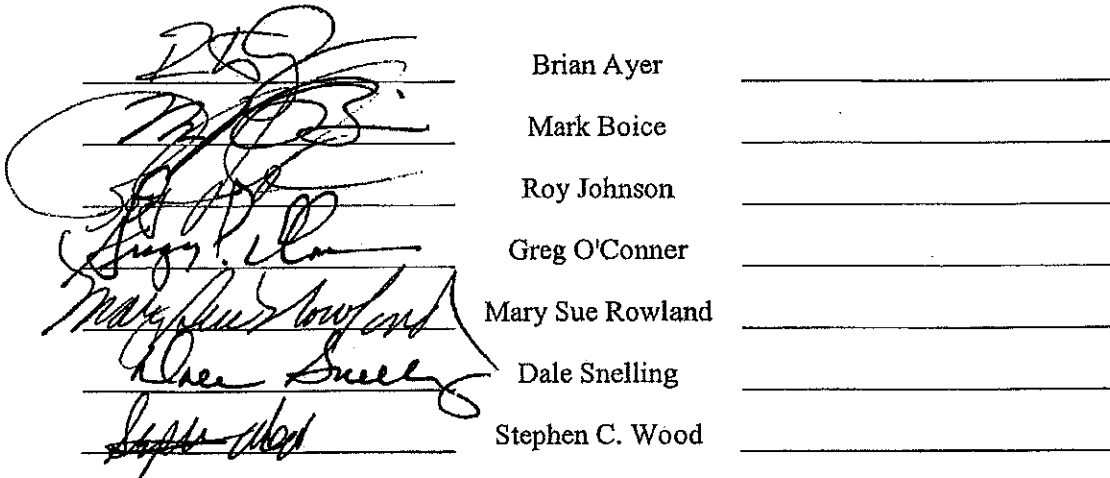 Brian Ayer
Mark Boice
Roy Johnson
Greg O'Conner
Mary Sue Rowland Mary Sue Rowland
Dale Snelling Dale Snelling
Stephen Wood Stephen C. Wood